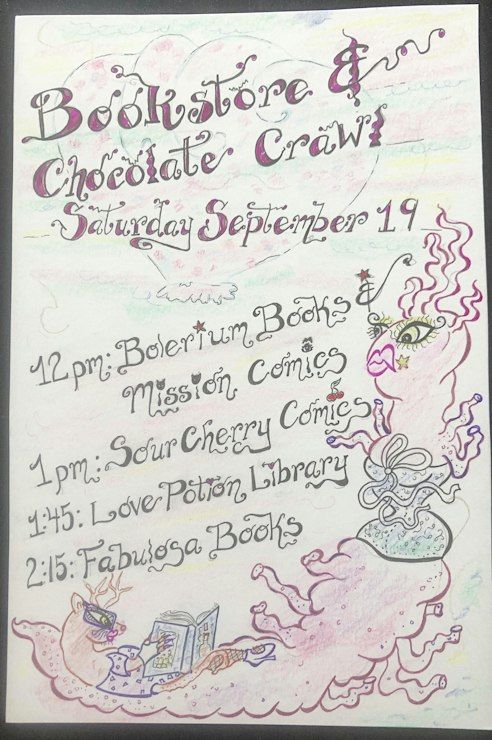 Bookstore &
Chocolate Crawl
Saturday September 19
12pm: Bolerium Books &
Mission Comics
1pm: Sour Cherry Comics
1:45: Love Potion Library
2:15: Fabulosa Books